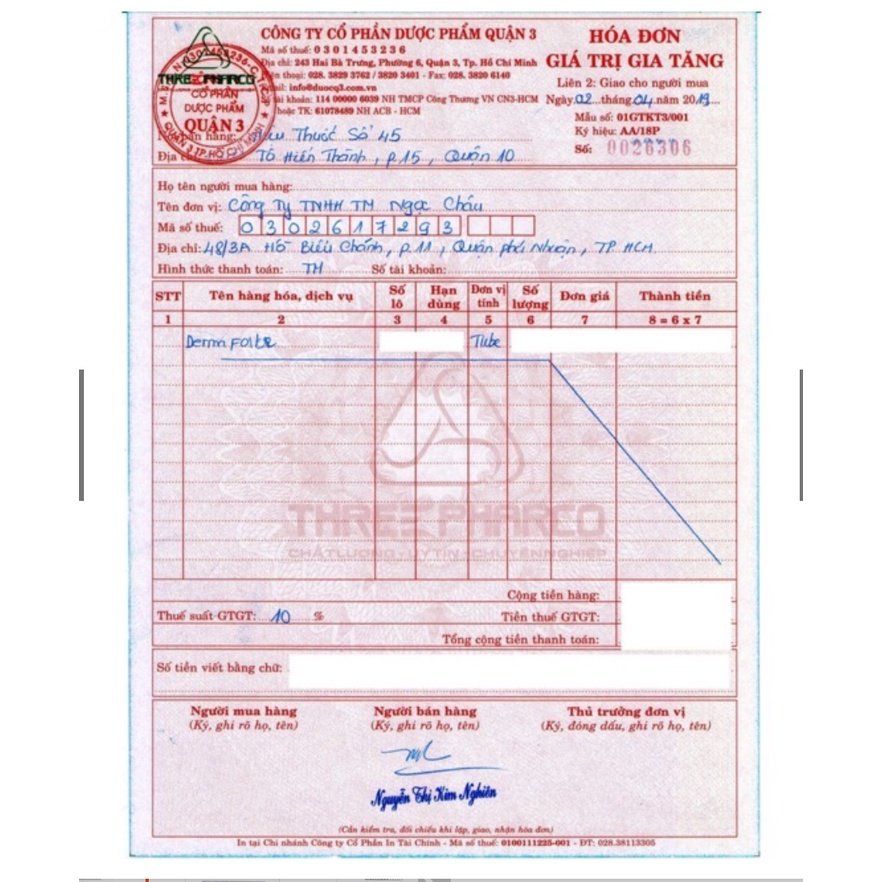 CÔNG TY CỔ PHẦN DƯỢC PHẨM QUẬN 3
Mã số thuế: 0 3 0 1 4 5 3 2 3 6
Địa chỉ: 243 Hai Bà Trưng, Phường 6, Quận 3, Tp. Hồ Chí Minh
thoại: 028. 3829 3762 / 3820 3401 - Fax: 028. 3820 6140
info@duocq3.com.vn
khoản: 114 00000 6039 NH TMCP Công Thương VN CN3-HCM
hoặc TK: 61078489 NH ACB - HCM
HÓA ĐƠN
GIÁ TRỊ GIA TĂNG
Liên 2: Giao cho người mua
Ngày 02 tháng 04 năm 2019
Mẫu số: 01GTKT3/001
Ký hiệu: AA/18P
Số: 0026306
THREE PHARCO
CỔ PHẦN
DƯỢC PHẨM
QUẬN 3
bán hàng: Thuốc Số 45
Địa Tô Hiến Thành, P.15, Quận 10
Họ tên người mua hàng:
Tên đơn vị: Công Ty TNHH TM Ngọc Châu
Mã số thuế: 0 3 0 2 6 1 7 2 9 3
Địa chỉ: 48/3A Hồ Biểu Chánh, P.11, Quận phú Nhuận, TP. HCM.
Hình thức thanh toán: TM Số tài khoản:
STT Tên hàng hóa, dịch vụ Số lô Hạn dùng Đơn vị tính Số lượng Đơn giá Thành tiền
1 2 3 4 5 6 7 8 = 6 x 7
Derma Forte Tube
THREE PHARCO
CHẤT LƯỢNG - UY TÍN - CHUYÊN NGHIỆP
Cộng tiền hàng:
Thuế suất GTGT: 10 % Tiền thuế GTGT:
Tổng cộng tiền thanh toán:
Số tiền viết bằng chữ:
Người mua hàng Người bán hàng Thủ trưởng đơn vị
(Ký, ghi rõ họ, tên) (Ký, ghi rõ họ, tên) (Ký, đóng dấu, ghi rõ họ, tên)
Nguyễn Thị Kim Nghiên
(Cần kiểm tra, đối chiếu khi lập, giao, nhận hóa đơn)
In tại Chi nhánh Công ty Cổ Phần In Tài Chính - Mã số thuế: 0100111225-001 - ĐT: 028.38113305